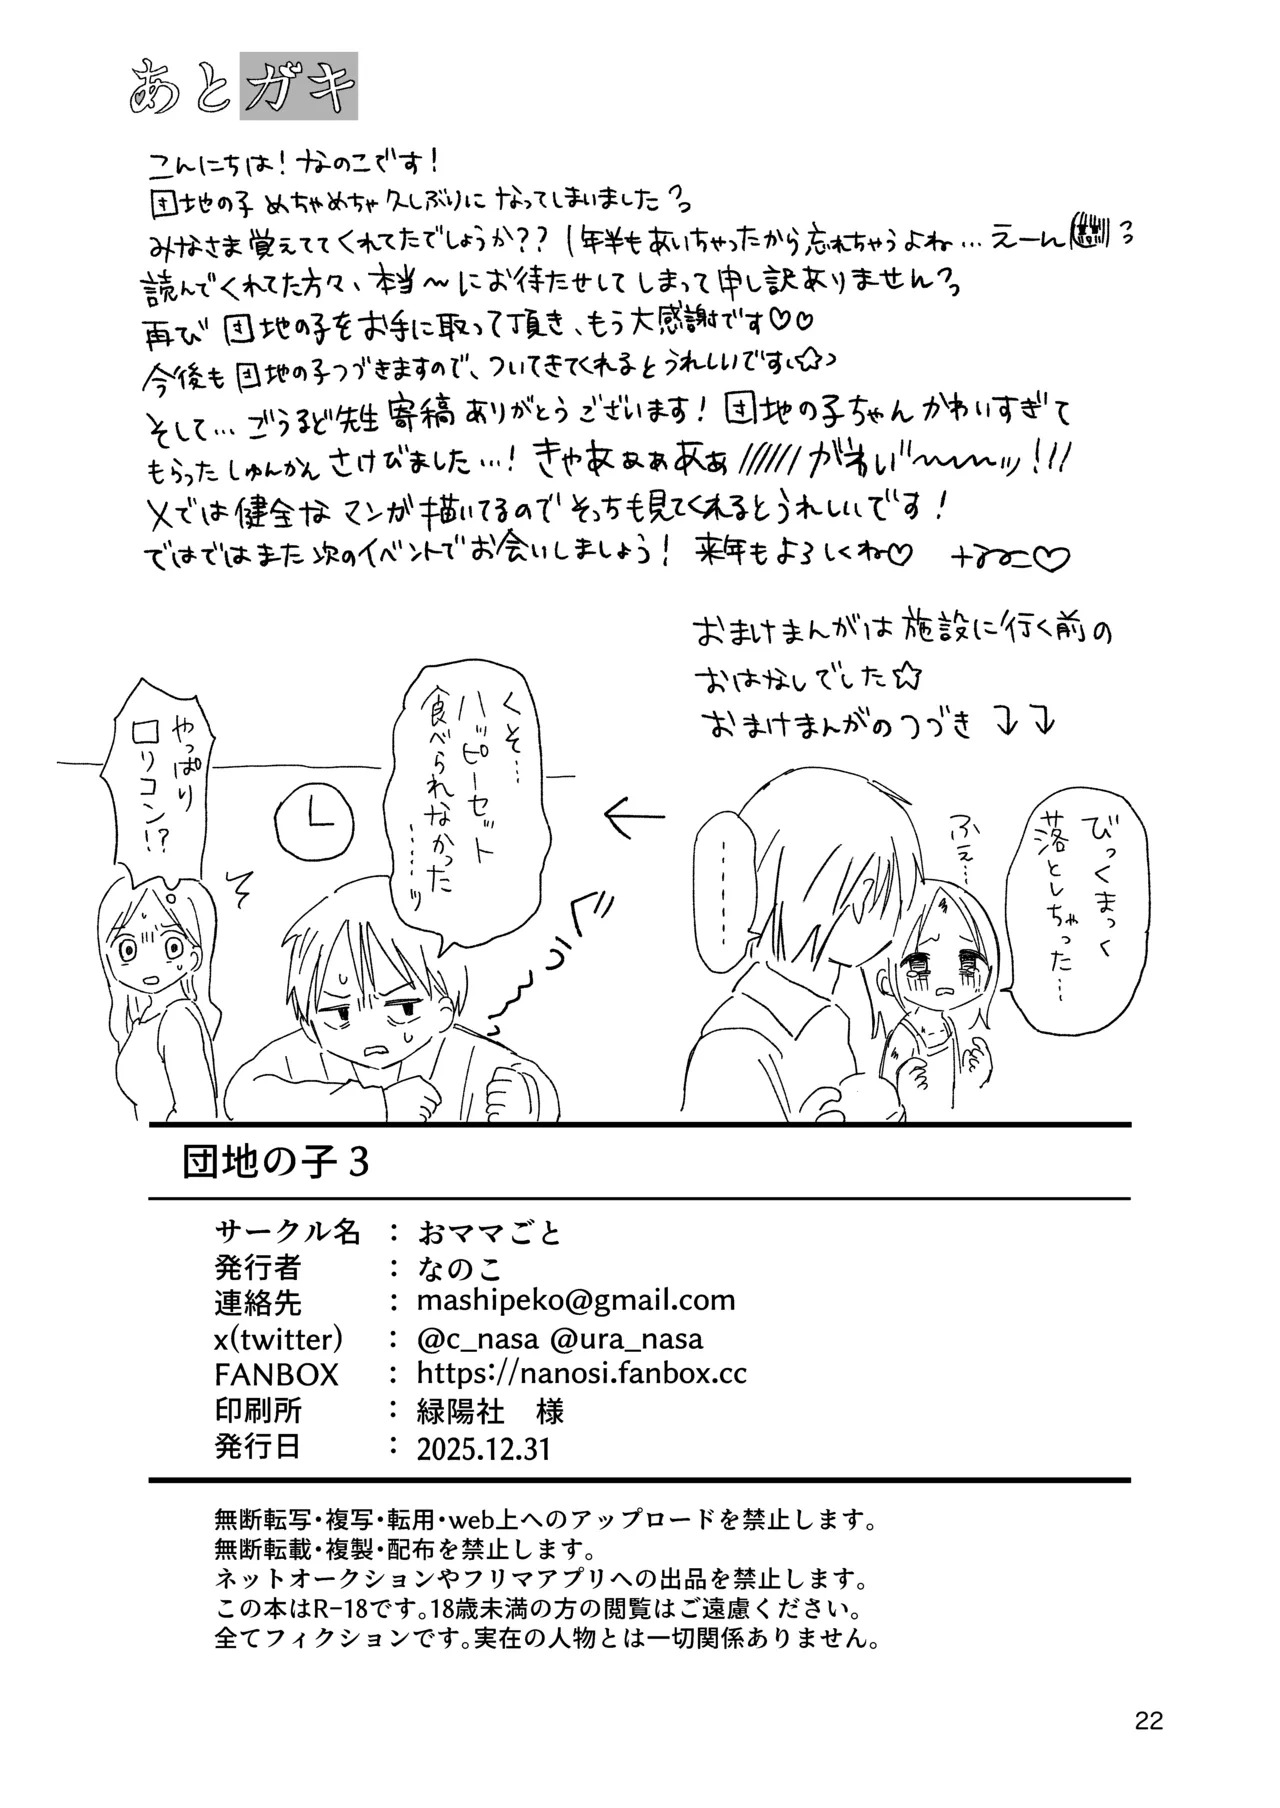 あとガキ
こんにちは!なのこです!
団地の子 めちゃめちゃ久しぶりになってしまいました
みなさま覚えててくれてたでしょうか??1年半もあいちゃったから忘れちゃうよね…えーん
読んでくれてた方々、本当〜にお待たせしてしまって申し訳ありません
再び 団地の子をお手に取って頂き、もう大感謝です♡♡
今後も団地の子つづきますので、ついてきてくれるとうれしいです☆
そして…ごうるど先生 寄稿ありがとうございます!団地の子ちゃんかわいすぎて
もらったしゅんかん さけびました…!きゃあぁぁあぁ//////がわい゛〜〜〜ッ!!!
Xでは健全なマンガ描いてるのでそっちも見てくれるとうれしいです!
ではではまた次のイベントでお会いしましょう!来年もよろしくね♡ なのこ♡
おまけまんがは施設に行く前の
おはなしでした☆
おまけまんがのつづき ↓↓
びっくまっく
落としちゃった…
ふえ…
………
くそ…
ハッピーセット
食べられなかった
……ッ
やっぱり
ロリコン!?
団地の子 3
サークル名 : おママごと
発行者 : なのこ
連絡先 : mashipeko@gmail.com
x(twitter) : @c_nasa @ura_nasa
FANBOX : https://nanosi.fanbox.cc
印刷所 : 緑陽社 様
発行日 : 2025.12.31
無断転写・複写・転用・web上へのアップロードを禁止します。
無断転載・複製・配布を禁止します。
ネットオークションやフリマアプリへの出品を禁止します。
この本はR-18です。18歳未満の方の閲覧はご遠慮ください。
全てフィクションです。実在の人物とは一切関係ありません。
22